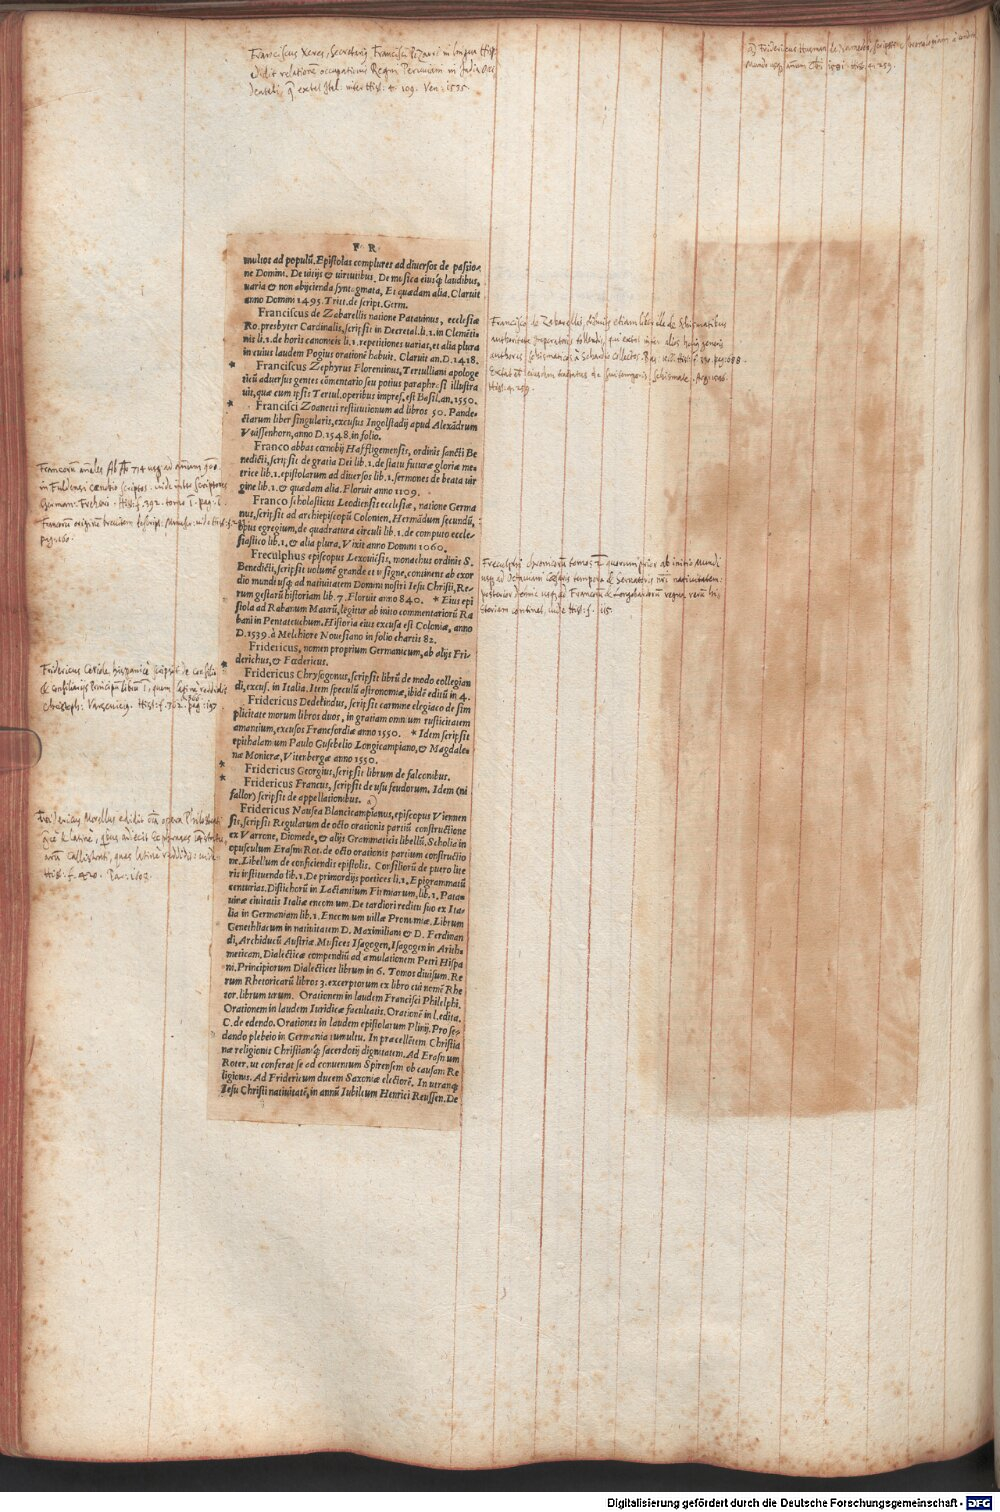 Franciscus Xeres, Secretariq Francisci Pizarri in lingua Hisp.
edidit relationē occupationis Regni Peruviani in India Occi
dentali, q̄ extet Ital: inter Hist: 4. 109. Ven: 1535.
a) Fridericus
F R
multos ad populū. Epistolas complures ad diuersos de passio-
ne Domini. De vitijs & virtutibus. De musica eiusq́; laudibus,
uaria & non abijcienda syntagmata, Et quædam alia. Claruit
anno Domini 1495. Trit. de script. Germ.
Franciscus de Zabarellis natione Patauinus, ecclesiæ
Ro. presbyter Cardinalis, scripsit in Decretal. li. 1. in Clemēti-
nis li. 1. de horis canonicis li. 1. repetitiones varias, et alia plura
in cuius laudem Pogius orationē habuit. Claruit an. D. 1418.
* Franciscus Zephyrus Florentinus, Tertulliani apologe
ticū aduersus gentes cōmentario seu potius paraphrasi illustra
uit, quæ cum ipsis Tertul. operibus impres. est Basil. an. 1550.
* Francisci Zoanetti restitutionum ad libros 50. Pande-
ctarum liber singularis, excusus Ingolstadij apud Alexādrum
Vuaissenhorn, anno D. 1548. in folio.
Franco abbas cœnobij Haffligemensis, ordinis sancti Be
nedicti, scripsit de gratia Dei lib. 1. de statu futuræ gloriæ me-
trice lib. 1. epistolarum ad diuersos lib. 1. sermones de beata vir
gine lib. 1. & quædam alia. Floruit anno 1109.
Franco scholasticus Leodiensis ecclesiæ, natione Germa
nus, scripsit ad archiepiscopū Colonien. Hermādum secundū,
opus egregium, de quadratura circuli lib. 1. de computo eccle-
siastico lib. 1. & alia plura. Vixit anno Domini 1060.
Freculphus episcopus Lexouiēsis, monachus ordinis S.
Benedicti, scripsit volumē grande et insigne, continens ab exor
dio mundi usq; ad natiuitatem Domini nostri Iesu Christi, Re-
rum gestarū historiam lib. 7. Floruit anno 840. * Eius epi
stola ad Rabanum Maurū, legitur ab initio commentariorū Ra
bani in Pentateuchum. Historia eius excusa est Coloniæ, anno
D. 1539. à Melchiore Nouesiano in folio chartis 82.
Fridericus, nomen proprium Germanicum, ab alijs Fri-
derichus, & Fœdericus.
* Fridericus Chrysogonus, scripsit librū de modo collegian
di, excus. in Italia. Item speculū astronomiæ, ibidē editū in 4.
Fridericus Dedekindus, scripsit carmine elegiaco de sim
plicitate morum libros duos, in gratiam omnium rusticitatem
amantium, excusos Francfordiæ anno 1550. * Idem scripsit
epithalamium Paulo Gusebelio Longicampiano, & Magdale-
næ Monieræ, Vitenbergæ anno 1550.
* Fridericus Georgius, scripsit librum de falconibus.
* Fridericus Francus, scripsit de usu feudorum. Idem (ni
fallor) scripsit de appellationibus. a)
Fridericus Nausea Blancicampianus, episcopus Viennen
sis, scripsit Regularum de octo orationis partiū constructione
ex Varrone, Diomede, & alijs Grammaticis libellū. Scholia in
opusculum Erasmi Rot. de octo orationis partium constructio
ne. Libellum de conficiendis epistolis. Consiliorū de puero lite
ris instituendo lib. 1. De primordijs poetices li. 1. Epigrammatū
centurias. Distichorū in Lactantium Firmiarum, lib. 1. Pata-
uinæ ciuitatis Italiæ encomium. De tardiori reditu suo ex Ita-
lia in Germaniam lib. 1. Encomium uillæ Prommiæ. Librum
Genethliacum in natiuitatem D. Maximiliani & D. Ferdinan
di, Archiducū Austriæ. Musices Isagogen, Isagogen in Arith-
meticam. Dialecticæ compendiū ad æmulationem Petri Hispa
ni. Principiorum Dialectices librum in 6. Tomos diuisum. Re
rum Rhetoricarū libros 3. excerptorum ex libro cui nomē Rhe
tor. librum unum. Orationem in laudem Francisci Philelphi.
Orationem in laudem Iuridicæ facultatis. Orationē in l. edita.
C. de edendo. Orationes in laudem epistolarum Plinij. Pro se-
dando plebeio in Germania tumultu. In præcellētem Christia
næ religionis Christianiq́; sacerdotij dignitatem. Ad Erasmum
Roter. ut conferat se ad conuentum Spirensem ob causam Re
ligionis. Ad Fridericum ducem Saxoniæ electorē. In utranq;
Iesu Christi natiuitatē, in annū Iubileum Henrici Reussen. De
Francisci de Zabarellis
authoritate Imperatoris tollendis, qui extet inter alios hujq generis
Francorū annales Ab Aō 714 usq ad annum 900.
in Fuldensi cœnobio scriptos: vide inter scriptores
German: Freheri. Hist: f. 392. tomo 1. pag: 1.
Freculphi Chronicorū tomos 2. quorum prior ab initio Mundi
usq ad Octaviani Cæsaris tempora & Servatoris nri nativitatem:
posterior hinc usq ad Francorū & Longobardorū regna rerū his
toriam continet, vide Hist: f. 115.
Fridericus Ceriola hispanicè scripsit de consilio
& consiliarijs Principū librū 1, quem latinè reddidit
Christoph: Varsevicius. Hist: f. 362. pag: 197.
Fridericus Morellus edidit oīa opera Philostrati
græcè & latinè, quibus adiecit
Hist: f. 420. Par: 1608.
Digitalisierung gefördert durch die Deutsche Forschungsgemeinschaft - DFG